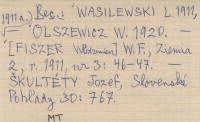 1911 a., Bes.: WASILEWSKI L. 1911,
√— OLSZEWICZ W. 1920. –
[FISZER Włodzimierz] W.F., Ziemia
2, r. 1911, nr 3: 46-47. —
ŠKULTÉTY Jozef, Slovenské
Pohľady 30: 767.
MT